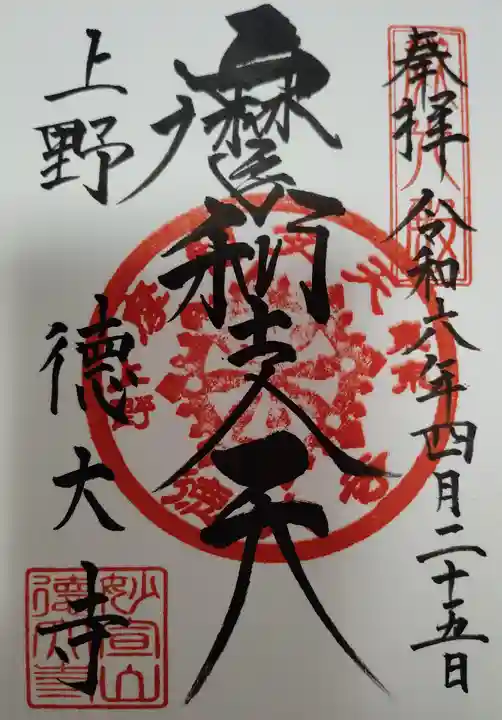 奉拝 令和六年四月二十五日
摩利支天
上野 徳大寺
妙宣山
徳大寺